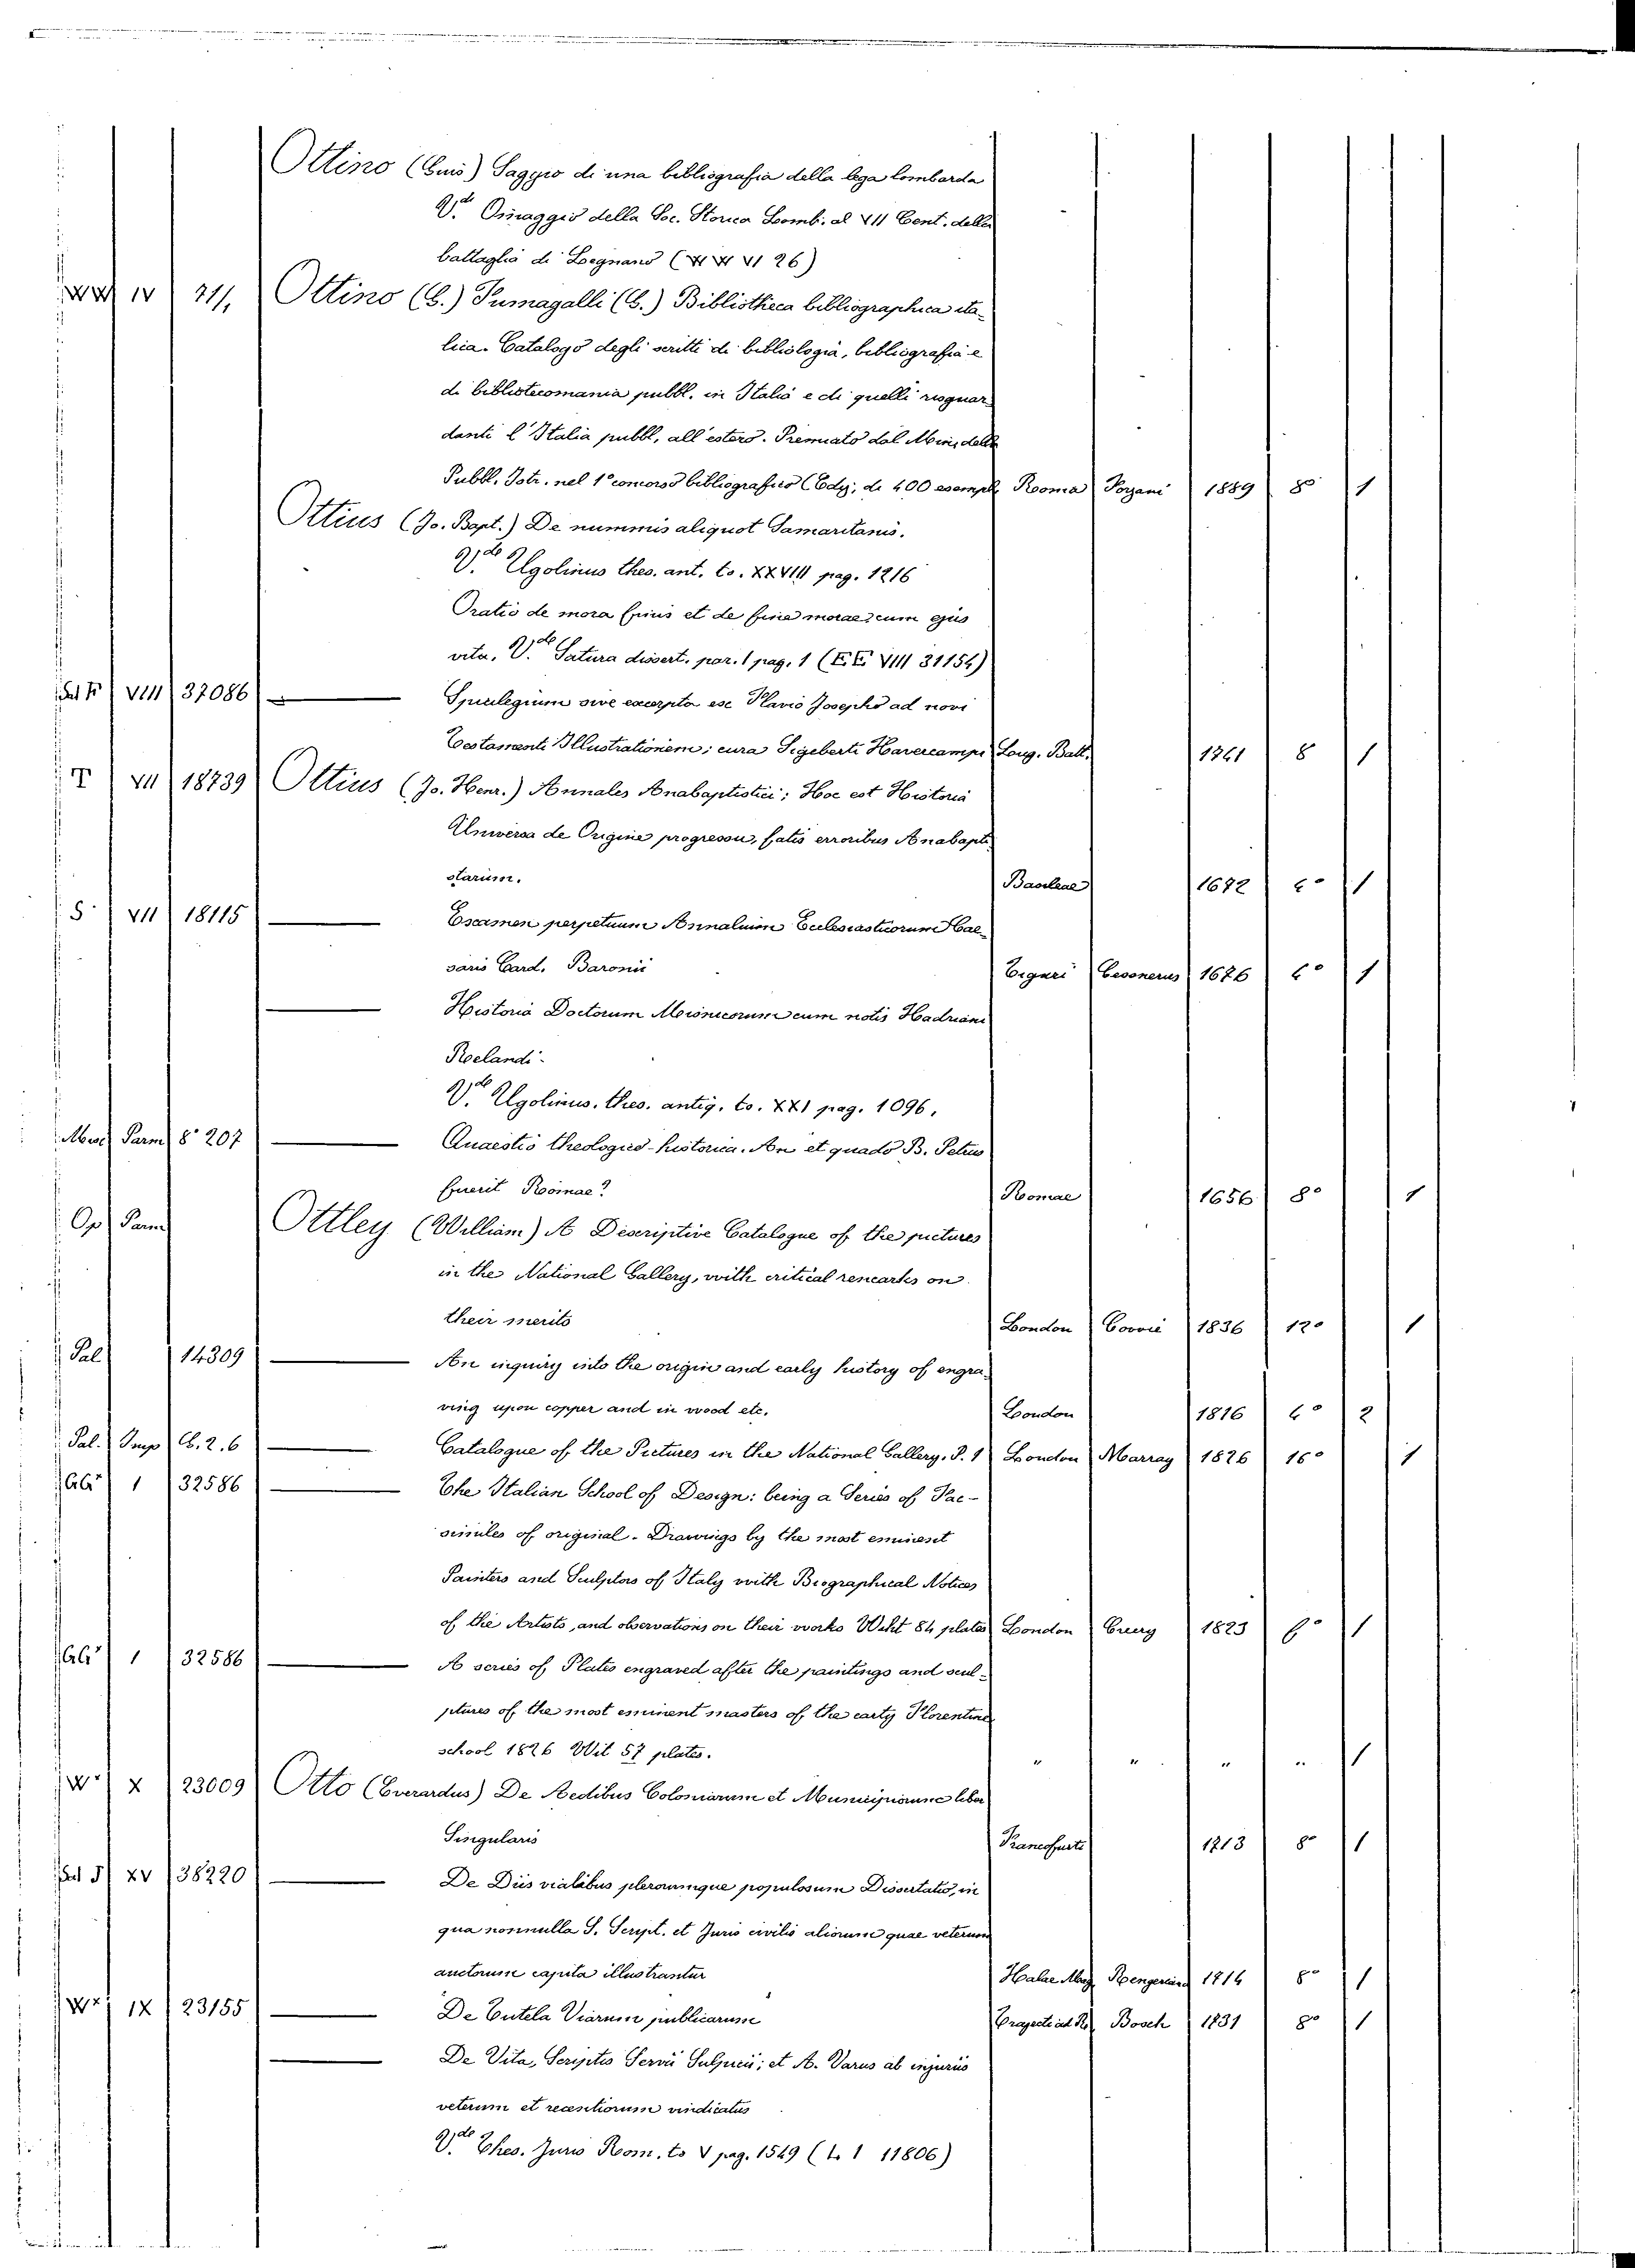 Ottino (Gius) Saggio di una bibliografia della lega lombarda
V.de Omaggio della Soc. Storica Lomb. al VII Cent. della
battaglia di Legnano (W W VI 26)
WW IV 711, Ottino (G.) Fumagalli (G.) Bibliotheca bibliographica ita-
lica. Catalogo degli scritti di bibliologia, bibliografia e
di biblioteconomia pubbl. in Italia e di quelli risguar
danti l'Italia pubbl, all'estero. Premiato dal Min. della
Pubbl. Istr. nel 1° concorso bibliografico (Ediz. di 400 esempl. Rooma 1889 8° 1
Ottius (Jo. Bapt.) De nummis aliquot Samaritanis.
V.de Ugolinus thes. ant. to. XXVIII pag. 1216
Oratio de mora finis et de fine morae; cum ejus
vita. V.de Satura dissert. par. 1 pag. 1 (EE VIII 31154)
VIII 37086 — Spicilegium sive excerpta ex Flavio Josepho ad novi
Testamenti Illustrationem; cura Sigeberti Havercampi Loug. Batt. 1741 8 1
T VII 18739 Ottius (Jo. Henr.) Annales Anabaptistici; Hoc est Historia
Universa de Origine progressu, fatis erroribus Anabapti
starum. Basileae 1672 4° 1
S VII 18115 — Examen perpetuum Annalium Ecclesiasticorum Cae
saris Card. Baronii Tiguri Gesonerus 1676 4° 1
— Historia Doctorum Misnicorum cum notis Hadriani
Reelandi.
V.de Ugolinus. thes. antiq. to. XXI pag. 1096.
Misc Parm 8° 207 — Quaestio theologico-historica. An et quado B. Petrus
fuerit Roomae? Romae 1656 8° 1
Op Parm Ottley (William) A Descriptive Catalogue of the pictures
in the National Gallery, with critical remarks on
their merits London 1836 12° 1
Pal 14309 — An inquiry into the origin and early history of engra-
ving upon copper and in wood etc. London 1816 4° 2
Pal. Imp Cb. 2. 6 — Catalogue of the Pictures in the National Gallery. P. 1 London Marray 1826 16° 1
1 32586 — The Italian School of Design: being a Series of Fac-
similes of original. Drawings by the most eminent
Painters and Sculptors of Italy with Biographical Notices
of the Artists, and observations on their works Wiht 84 plates London 1823 f° 1
1 32586 — A series of Plates engraved after the paintings and scul-
ptures of the most eminent masters of the early Florentine
school 1826 Wit 57 plates. " " " " 1
W X 23009 Otto (Everardus) De Aedibus Coloniarum et Municipiorum liber
Singularis Francofurti 1713 8° 1
XV 38220 — De Diis vialibus plerorumque populosum Dissertatio, in
qua nonnulla S. Script. et Juris civilis aliorum quae veterum
auctorum capita illustrantur Halae Mag. Rengeriana 1714 8° 1
W IX 23155 — De Tutela Viarum publicarum Trajecti ad R. Bosch 1731 8° 1
— De Vita, Scriptis Servii Sulpicii; et A. Varus ab injuriis
veterum et recentiorum vindicatus
V.de Thes. Juris Rom. to V pag. 1549 (L 1 11806)